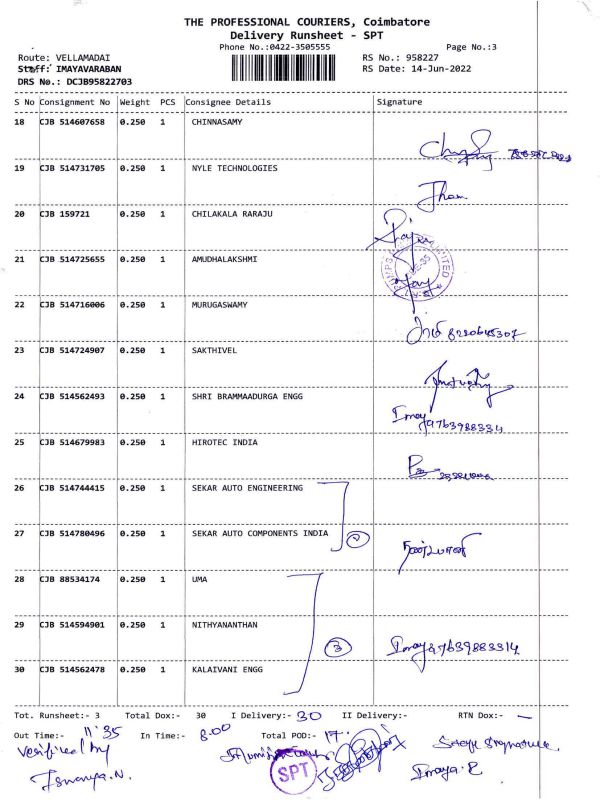 THE PROFESSIONAL COURIERS, Coimbatore
Delivery Runsheet - SPT
Phone No.:0422-3505555
Page No.:3
Route: VELLAMADAI
RS No.: 958227
Staff: IMAYAVARABAN
RS Date: 14-Jun-2022
DRS No.: DCJB95822703
S No Consignment No Weight PCS Consignee Details Signature
18 CJB 514607658 0.250 1 CHINNASAMY
19 CJB 514731705 0.250 1 NYLE TECHNOLOGIES
20 CJB 159721 0.250 1 CHILAKALA RARAJU
21 CJB 514725655 0.250 1 AMUDHALAKSHMI
22 CJB 514716006 0.250 1 MURUGASWAMY
8220645307
23 CJB 514724907 0.250 1 SAKTHIVEL
24 CJB 514562493 0.250 1 SHRI BRAMMAADURGA ENGG
Imay
25 CJB 514679983 0.250 1 HIROTEC INDIA
26 CJB 514744415 0.250 1 SEKAR AUTO ENGINEERING
27 CJB 514780496 0.250 1 SEKAR AUTO COMPONENTS INDIA
2
28 CJB 88534174 0.250 1 UMA
29 CJB 514594901 0.250 1 NITHYANANTHAN
3
Imay
30 CJB 514562478 0.250 1 KALAIVANI ENGG
Tot. Runsheet:- 3 Total Dox:- 30 I Delivery:- 30 II Delivery:- RTN Dox:- -
Out Time:- 11:35 In Time:- 8.00 Total POD:- 17
Verified by
Signature
SPT
Imaya. R